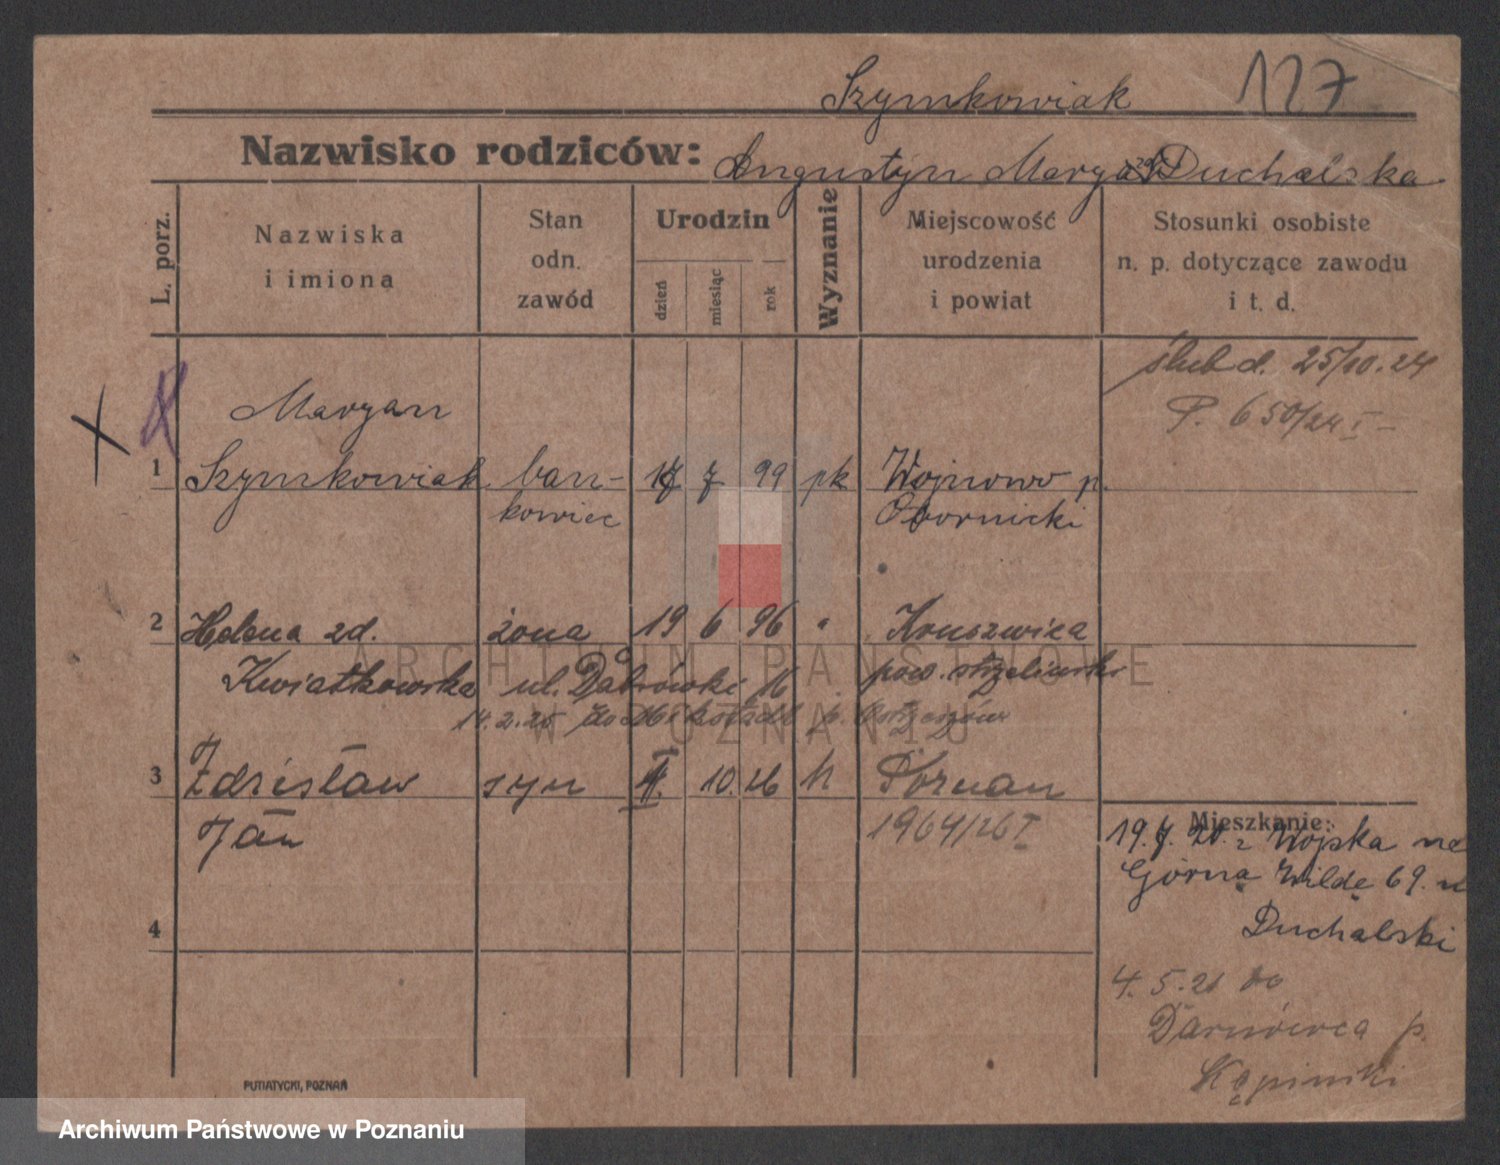 Szymkowiak 127
Nazwisko rodziców: Augustyn Marya Duchalska
L. porz.
Nazwiska
i imiona
Stan
odn.
zawód
Urodzin
dzień
miesiąc
rok
Wyznanie
Miejscowość
urodzenia
i powiat
Stosunki osobiste
n. p. dotyczące zawodu
i t. d.
ślub d. 25/10.24
P. 650/24 I
Maryan
1 Szymkowiak ban- 7 99 pk Wojnowo p.
kowiec Obornicki
2 Helena zd. żona 19 6 96 " Kruszwica
Kwiatkowska ul. Dąbrówki pow. strzeliński
14.2.25 do p. Ostrzeszów
3 Zdzisław syn 10. 26 Poznan
Jan 1964/26 I
Mieszkanie:
19. z Wojska na
Górną Wildę 69. u
Duchalski
4
4.5.21 do
p.
Kępiński
PUTIATYCKI, POZNAŃ
ARCHIWUM PAŃSTWOWE
W POZNANIU
Archiwum Państwowe w Poznaniu